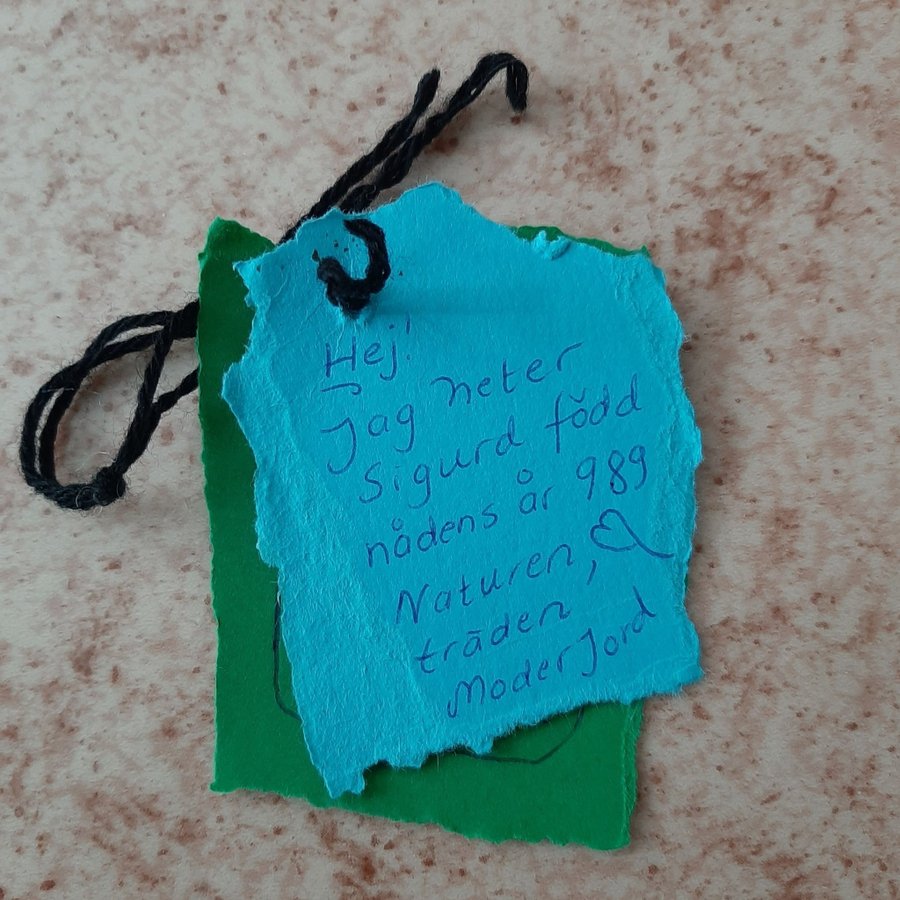 Hej!
Jag heter
Sigurd född
nådens år 989
Naturen,
träden
Moder Jord